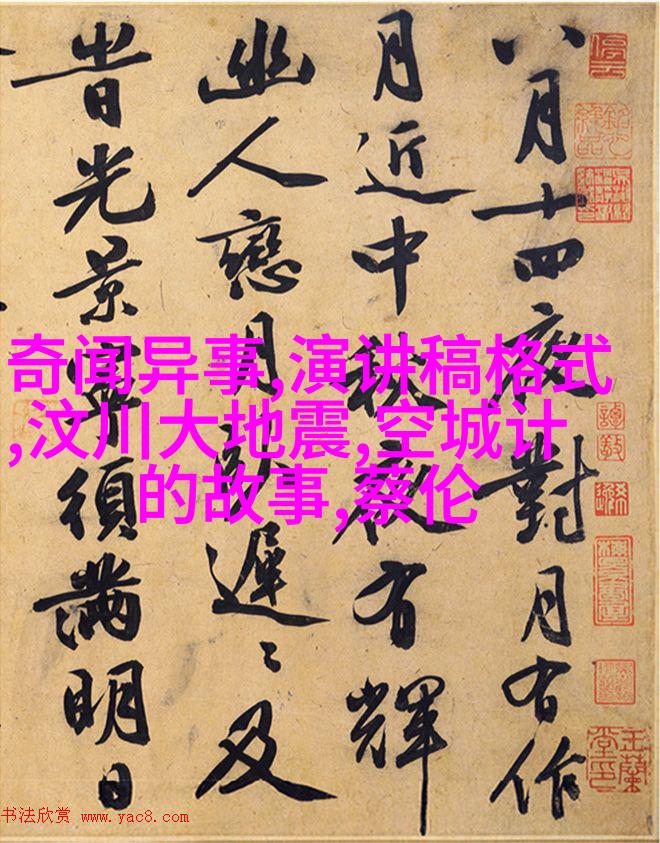 八月十四夜對月有作
月近中秋夜有輝
幽人戀月臥遲〻及
旹光景寧須滿明日
奇闻异事,演讲稿格式
,汶川大地震,空城计
的故事,蔡伦
停雲
玉蘭堂印
书法欣赏 www.yac8.com